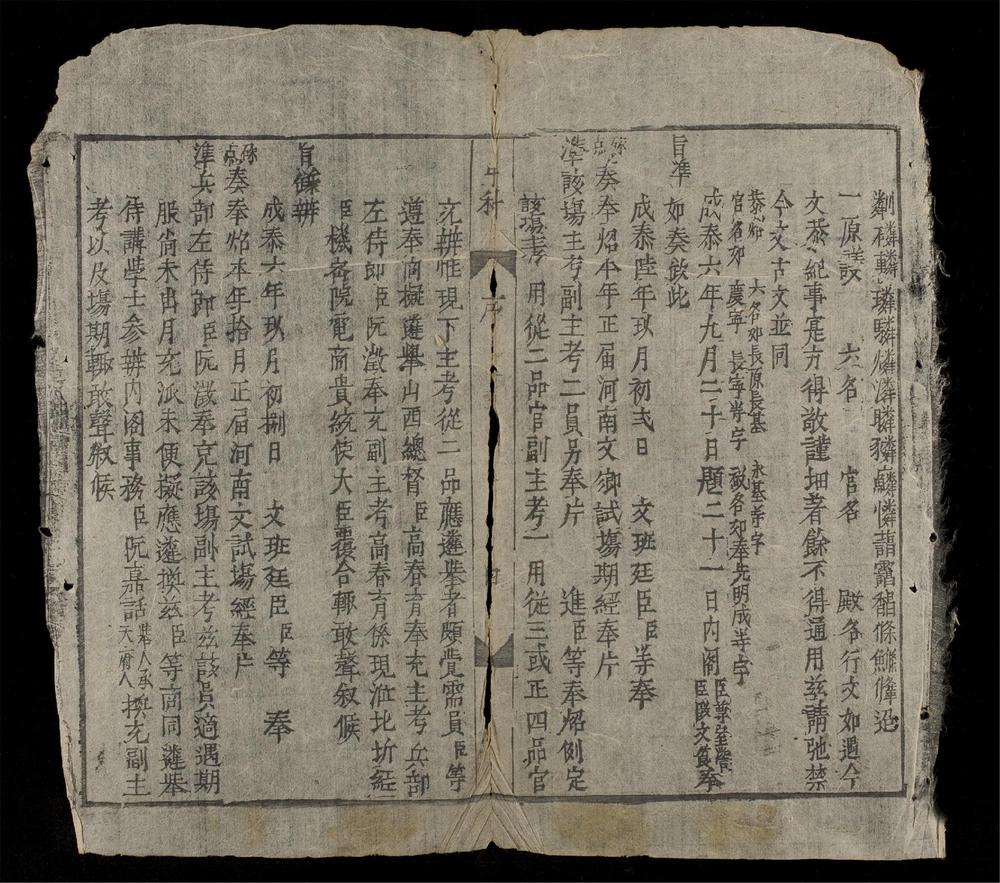 粼𥻘轔璘驎燐潾瞵獜麟憐
一原議 六名 官名 殿各行文如遇今
文恭紀事是方得敬謹抽著餘不得通用兹請弛禁
今文古文並同
成泰六年九月二十日題二十一日内阁臣奉
如奏欽此
旨準
成泰陸年玖月初弍日 文班廷臣臣等奉
奏奉炤本年正届河南文鄉試場期經奉片
準該場主考副主考二員另奉片 進臣等奉炤例定
該場主考 用從二品官副主考一用從三或正四品官
科 序
充辨惟現下主考從二品應遴舉者頗覺需員臣等
遵奉商擬遴舉山西總督臣高春育奉充主考兵部
左侍郎臣阮澂奉充副主考高春育係現涖北圻經
臣機密院電商貴統使大臣覆合輒敢聲叙候
旨條辨
成泰六年玖月初捌日 文班廷臣臣等 奉
奏奉炤本年拾月正届河南文試場經奉片
準兵部左侍郎臣阮澂奉充該場副主考兹該員適遇期
服尚未出月充派未便擬應遴換兹臣等商同遴舉
侍講學士參辨内阁事務臣阮嘉話舉人承天府人換充副主
考以及場期輒敢聲叙候